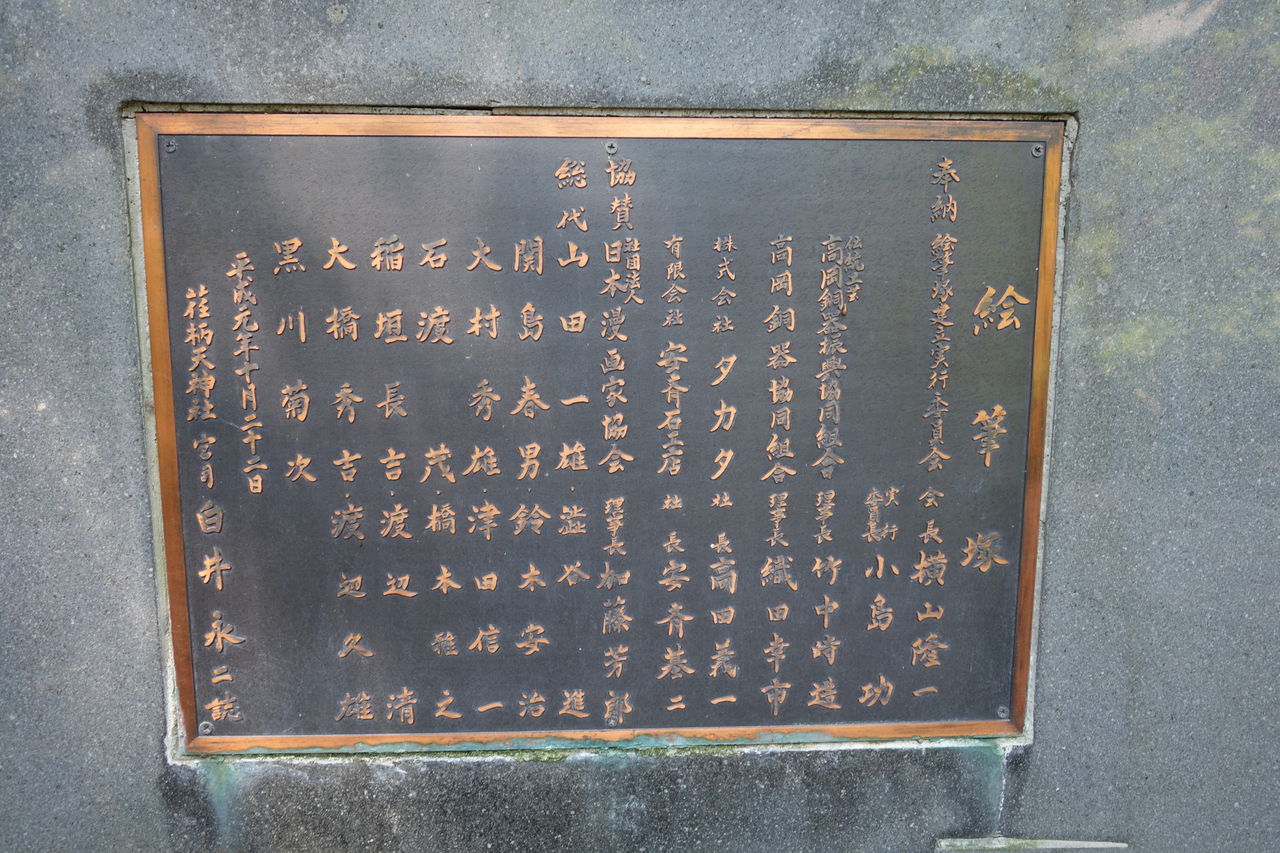 絵筆塚
奉納 絵筆塚建立実行委員会 会長 横山隆一
実行委員長 小島功
伝統工芸 高岡銅器振興協同組合 理事長 竹中時造
高岡銅器協同組合 理事長 織田幸市
株式会社 タカタ 社長 高田義一
有限会社 安斉石工店 社長 安斉基二
協賛 社団法人 日本漫画家協会 理事長 加藤芳郎
総代 山田一雄・澁谷 進
関島春男・鈴木安治
大村秀雄・津田信一
石渡 茂・橋本雅之
稲垣長吉・渡辺 清
大橋秀吉・渡辺久雄
黒川菊次
平成元年十月二十二日
荏柄天神社 宮司 白井永二誌